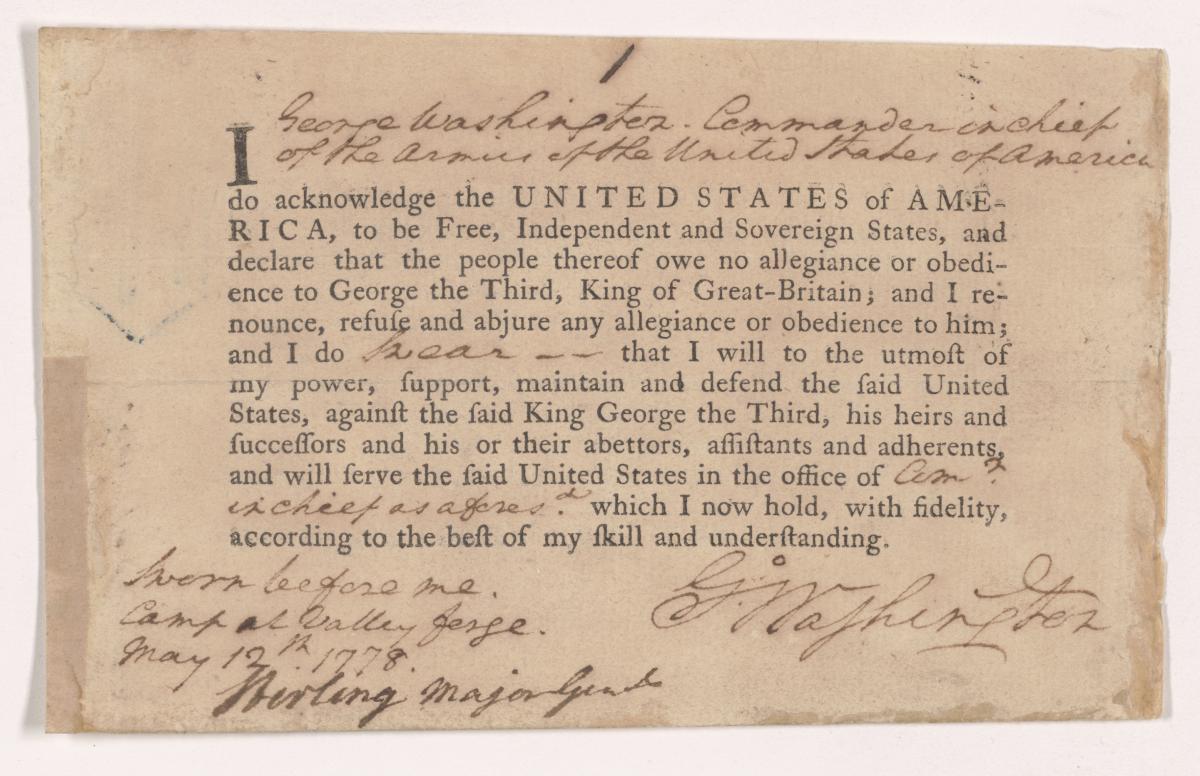 1
George Washington. Commander in chief
of the Armies of the United States of America
I
do acknowledge the UNITED STATES of AME-
RICA, to be Free, Independent and Sovereign States, and
declare that the people thereof owe no allegiance or obedi-
ence to George the Third, King of Great-Britain; and I re-
nounce, refuſe and abjure any allegiance or obedience to him;
and I do Swear —— that I will to the utmoſt of
my power, ſupport, maintain and defend the ſaid United
States, againſt the ſaid King George the Third, his heirs and
ſucceſſors and his or their abettors, aſſiſtants and adherents,
and will ſerve the ſaid United States in the office of Comr.
in chief as aforesd. which I now hold, with fidelity,
according to the beſt of my ſkill and underſtanding.
Sworn before me.
Camp at Valley forge.
May 12th. 1778.
Go: Washington
Stirling Major Genl